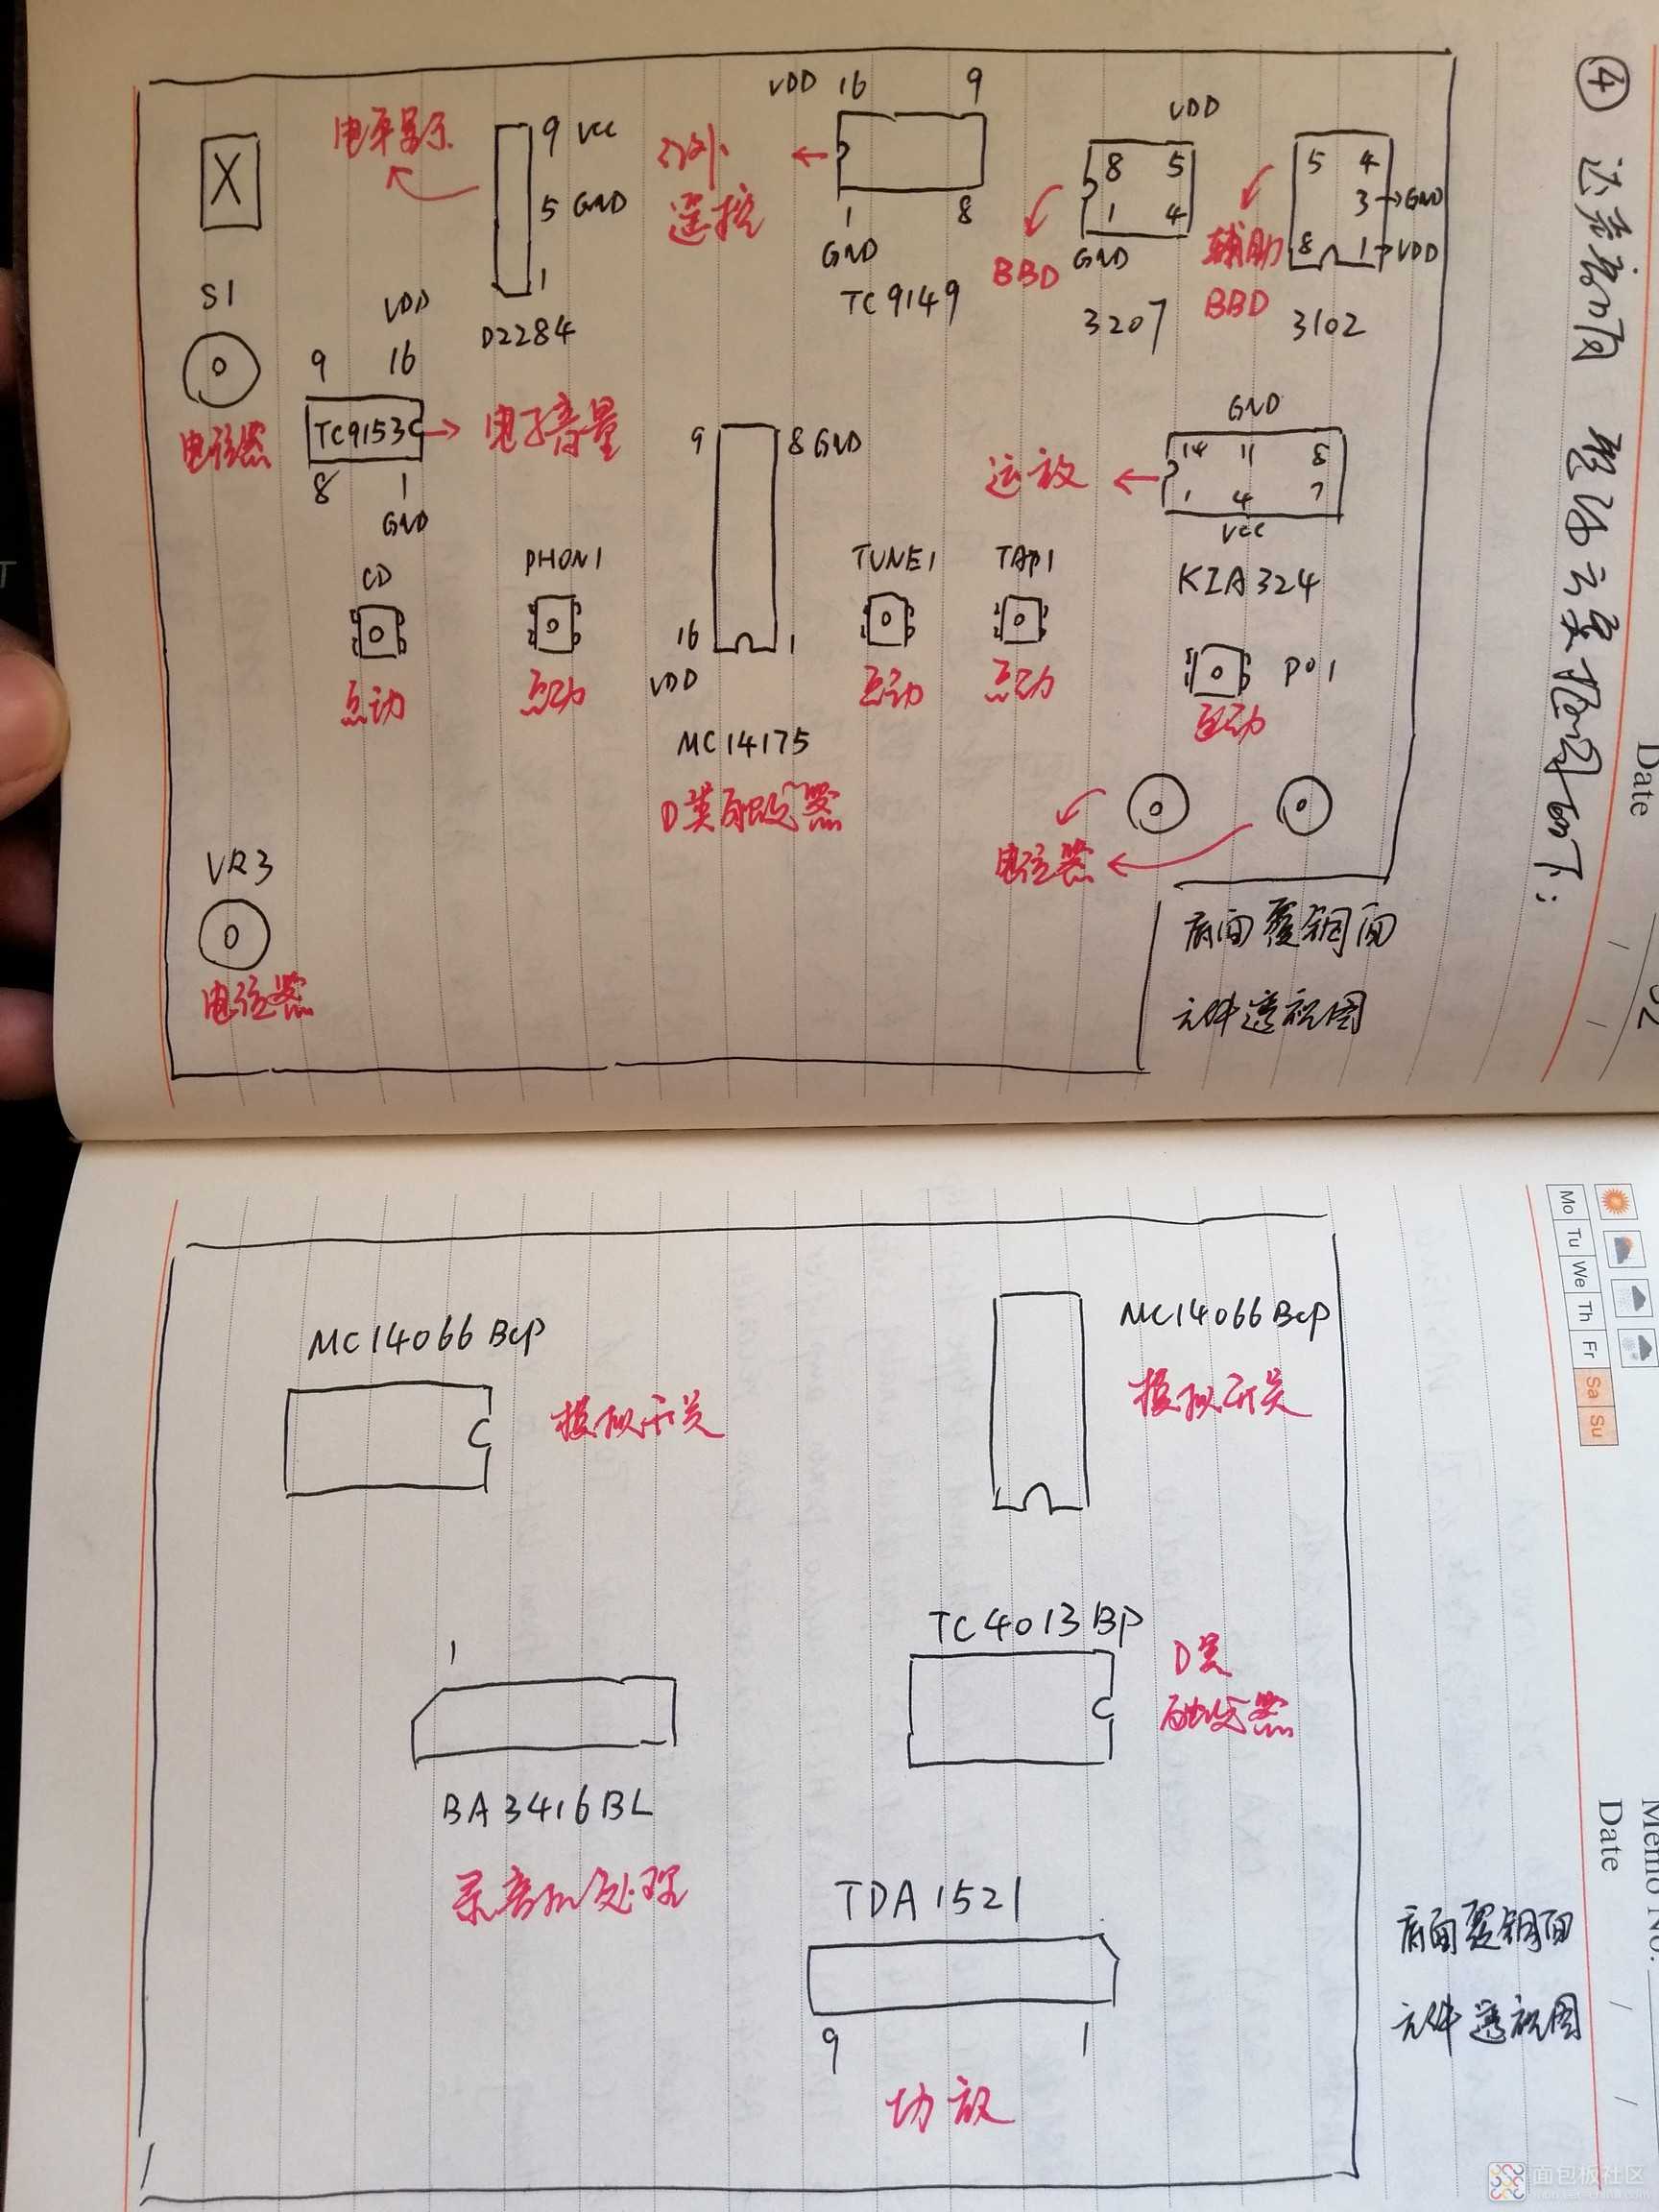 VDD 16 9
VDD
电平显示
9 VCC
5 GND
1
D2284
红外
遥控
1 8
GND
TC9149
8 5
1 4
GND
BBD
3207
5 4
3 → GND
8 1 → VDD
辅助
BBD
3102
X
S1
电位器
VDD
9 16
TC9153
8 1
GND
电子音量
9 8 GND
16 1
VDD
MC14175
D类触发器
运放
GND
14 11 8
1 4 7
VCC
KIA324
CD
点动
PHON1
点动
TUNE1
点动
TAP1
点动
P01
点动
电位器
VR3
电位器
背面覆铜面
元件透视图
④
Date
MC14066BCP
模拟开关
MC14066BCP
模拟开关
TC4013BP
D类
触发器
1
BA3416BL
录音机处理
TDA1521
9 1
功放
背面覆铜面
元件透视图
Mo Tu We Th Fr Sa Su
Memo No.
Date
面包板社区